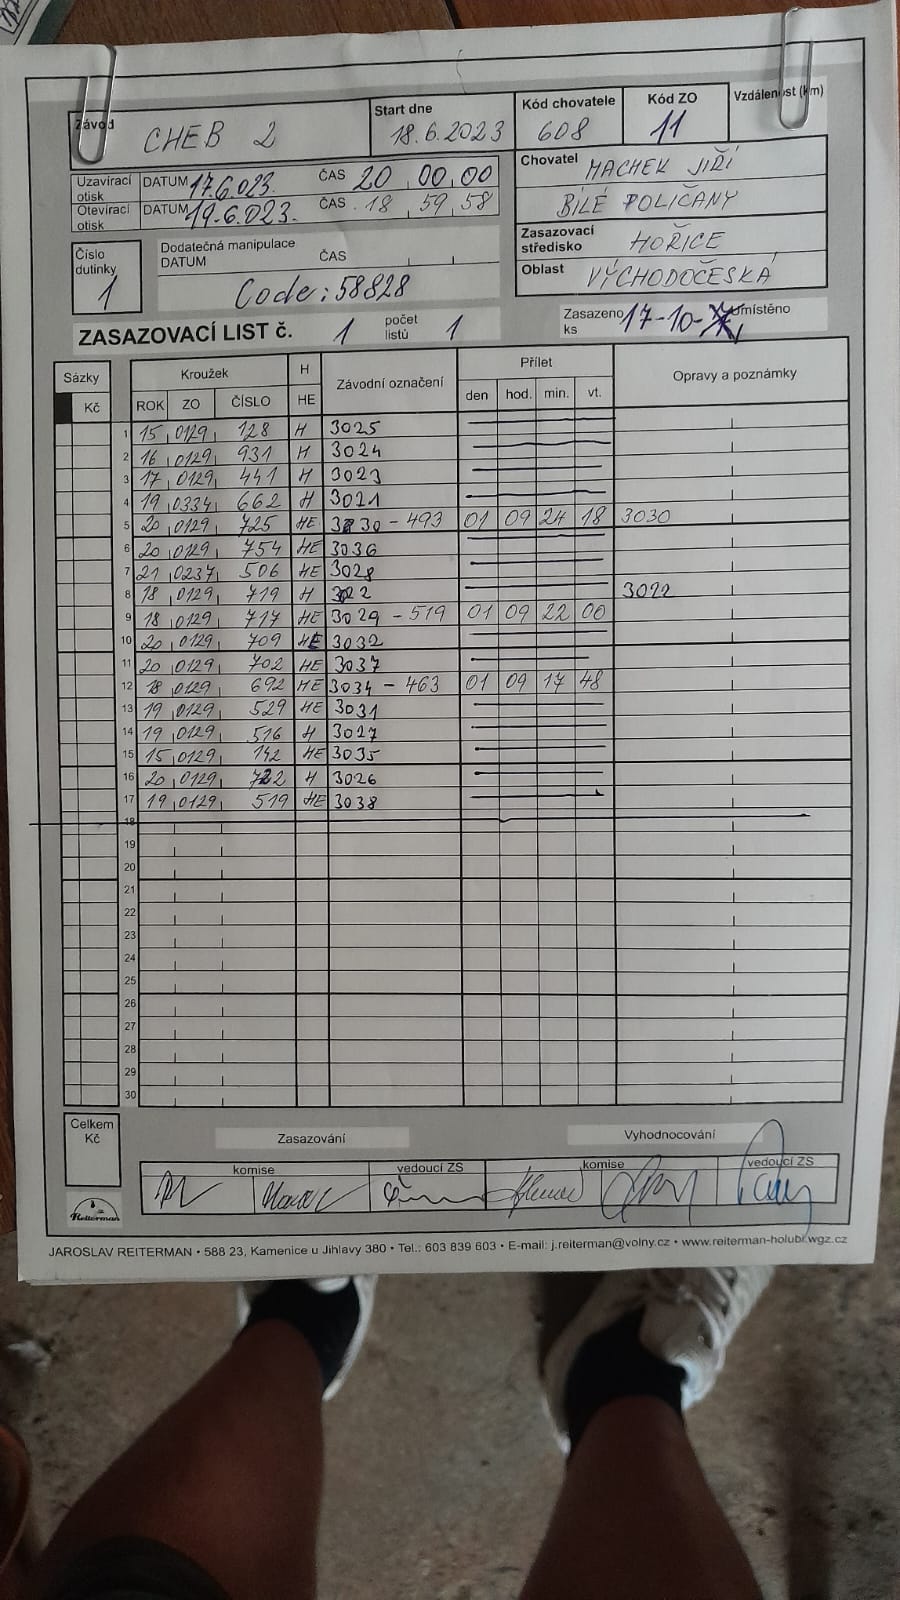 Závod CHEB 2
Start dne 18.6.2023
Kód chovatele 608
Kód ZO 11
Vzdálenost (km)
Uzavírací otisk DATUM 17.6.023. ČAS 20 00,00
Otevírací otisk DATUM 19.6.023. ČAS 18 59,58
Chovatel MACHEK JIŘÍ
BÍLÉ POLIČANY
Zasazovací středisko HOŘICE
Oblast VÝCHODOČESKÁ
Číslo dutinky 1
Dodatečná manipulace
DATUM ČAS
Code: 58828
ZASAZOVACÍ LIST č. 1 počet listů 1
Zasazeno ks 17-10- Umístěno
Sázky Kroužek H Závodní označení Přílet Opravy a poznámky
Kč ROK ZO ČÍSLO HE den hod. min. vt.
1 15 0129 128 H 3025
2 16 0129 931 H 3024
3 17 0129 441 H 3023
4 19 0334 662 H 3021
5 20 0129 725 HE 3030 - 493 01 09 24 18 3030
6 20 0129 754 HE 3036
7 21 0237 506 HE 3028
8 18 0129 719 H 3022 3022
9 18 0129 717 HE 3029 - 519 01 09 22 00
10 20 0129 709 HE 3032
11 20 0129 702 HE 3037
12 18 0129 692 HE 3034 - 463 01 09 17 48
13 19 0129 529 HE 3031
14 19 0129 516 H 3027
15 15 0129 142 HE 3035
16 20 0129 722 H 3026
17 19 0129 519 HE 3038
18
19
20
21
22
23
24
25
26
27
28
29
30
Celkem Kč
Zasazování Vyhodnocování
komise vedoucí ZS komise vedoucí ZS
Reiterman
JAROSLAV REITERMAN • 588 23, Kamenice u Jihlavy 380 • Tel.: 603 839 603 • E-mail: j.reiterman@volny.cz • www.reiterman-holubi.wgz.cz